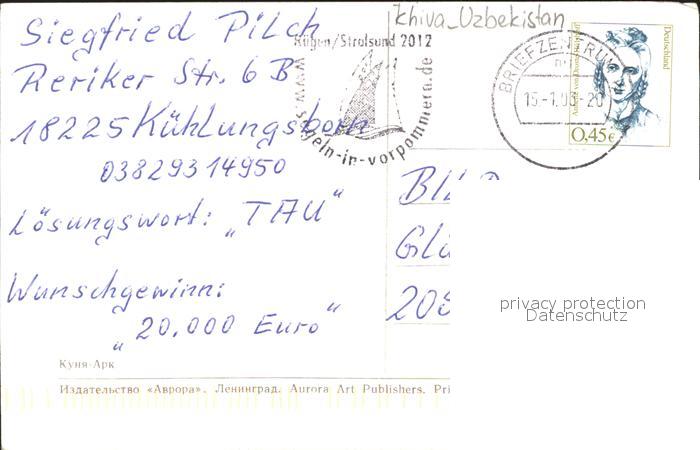 Siegfried Pilch
Reriker Str. 6 B
18225 Kühlungsborn
03829314950
Lösungswort: „TAU"
Wunschgewinn:
„20.000 Euro"
Куня-Арк
Издательство «Аврора». Ленинград. Aurora Art Publishers. Pri
Khiva_Uzbekistan
Rügen/Stralsund 2012
www.segeln-in-vorpommern.de
BRIEFZENTRUM
15-1.03-20
Deutschland
0,45€
Glü
208
privacy protection
Datenschutz